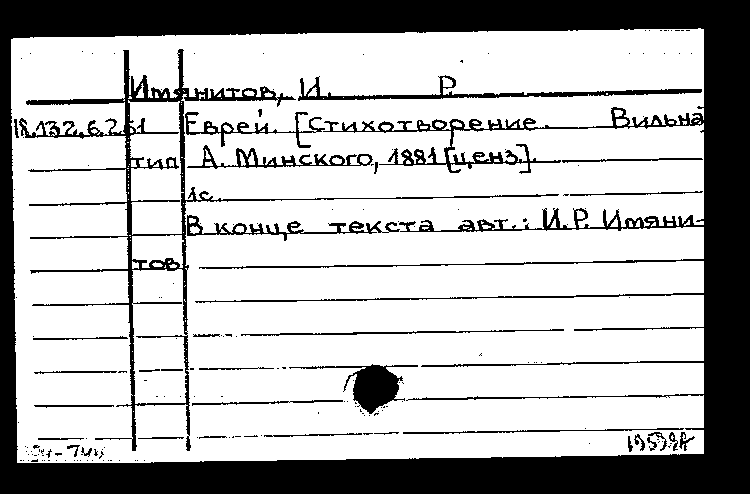 Имянитов, И. Р.
18.132.6.261 Еврей. [Стихотворение. Вильна]
тип. А. Минского, 1881 [ценз].
1с.
В конце текста авт.: И.Р. Имяни-
тов.